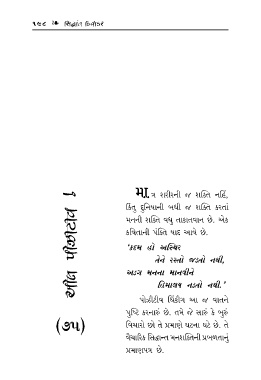 ૧૫૮ ❧ સિદ્ધાંત દિવાકર
ઓલ પોઝીટીવ !
(૭૫)
માત્ર શરીરની જ શક્તિ નહિ,
કિંતુ દુનિયાની બધી જ શક્તિ કરતાં
મનની શક્તિ વધુ તાકાતવાન છે. એક
કવિતાની પંક્તિ યાદ આવે છે.
'કદમ હો અસ્થિર
તેને રસ્તો જડતો નથી,
અડગ મનના માનવીને
હિમાલય નડતો નથી.'
પોઝીટીવ થિંકીંગ આ જ વાતને
પુષ્ટિ કરનારું છે. તમે જે સારું કે બુરું
વિચારો છો તે પ્રમાણે ઘટના ઘટે છે. તે
વૈચારિક સિદ્ધાન્ત મનશક્તિની પ્રબળતાનું
પ્રમાણપત્ર છે.